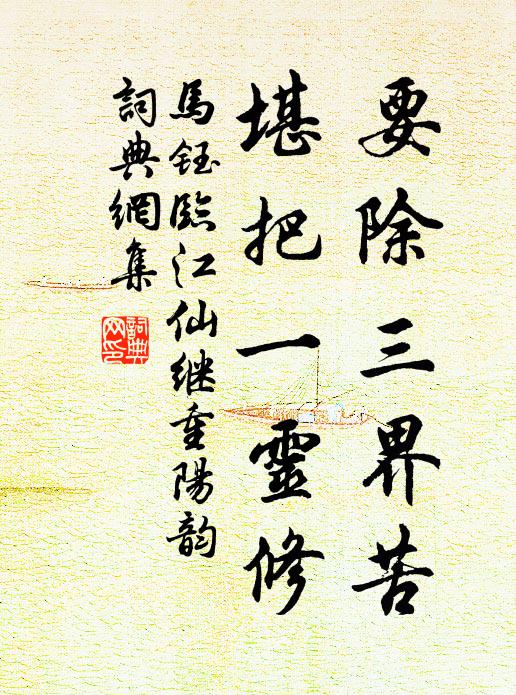 要除三界苦
堪把一靈修
馬鈺臨江仙继重陽韵
詞典網集
詞典網印